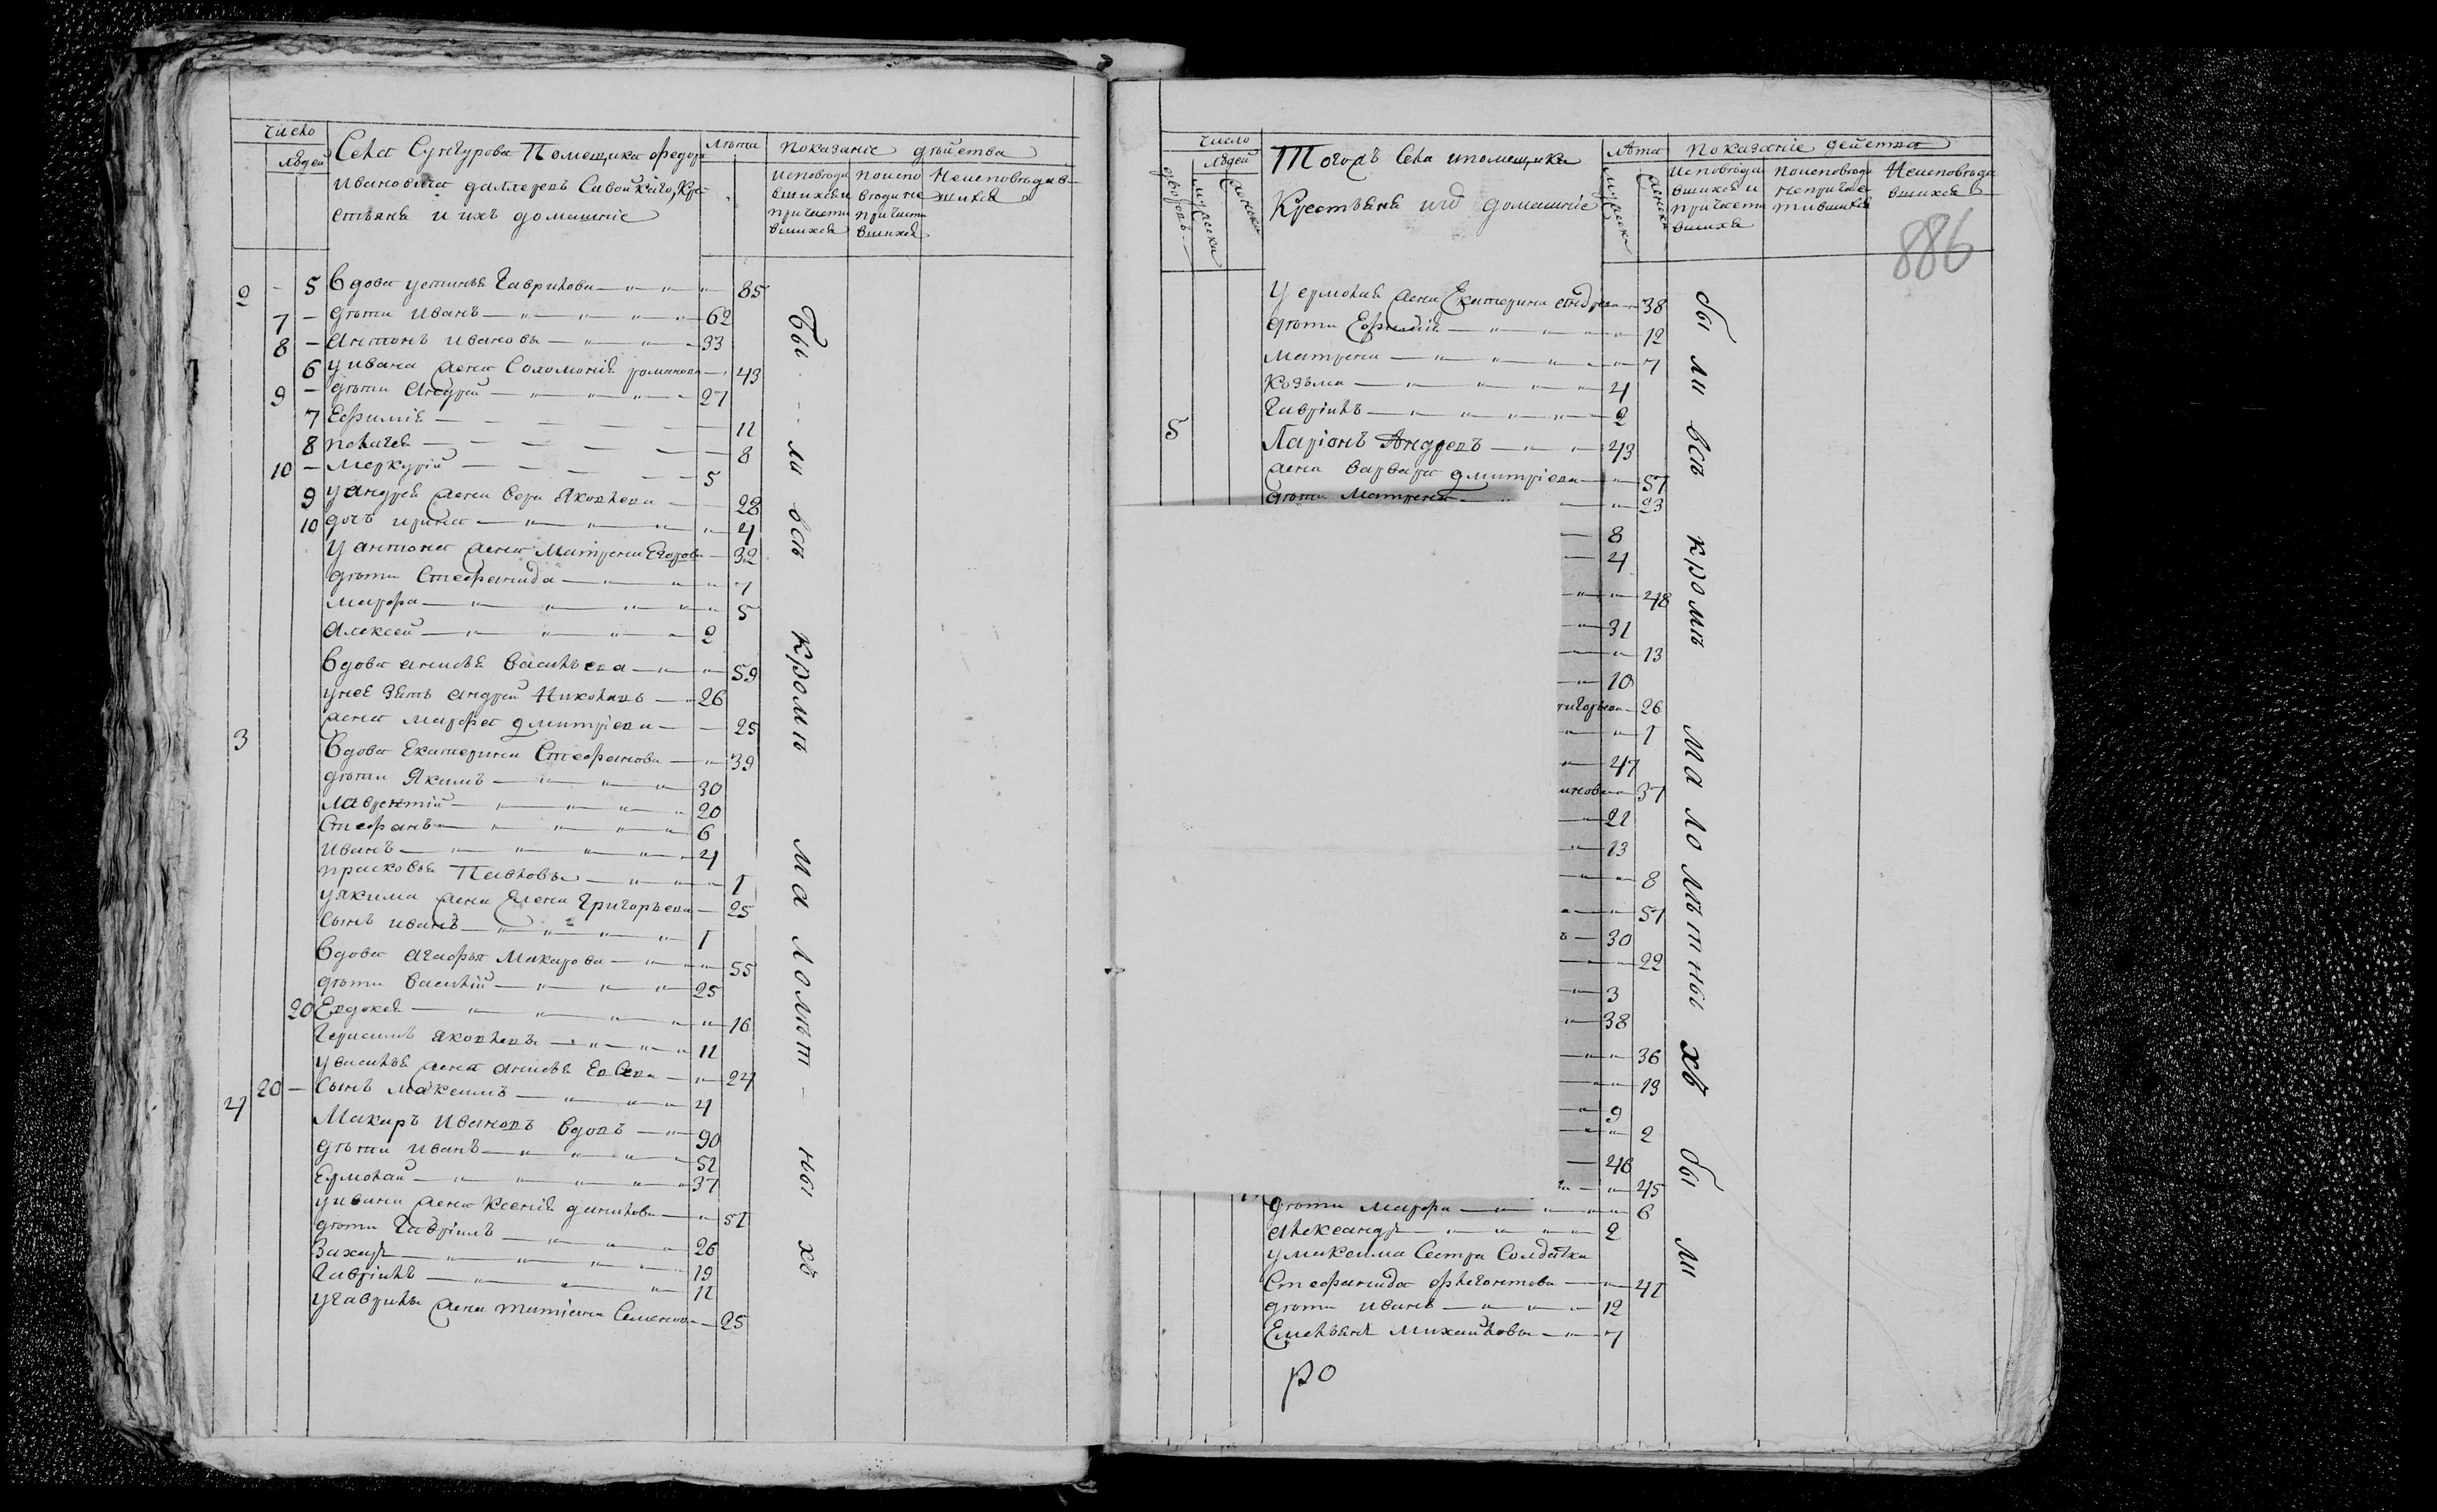 число
людей
Села Сунгурова Помещика Федора
Ивановича
Крестьяне и ихъ домашние
Лѣта
Показание действа
Исповѣдавшихся и причастившихся
Неисповѣдавшихся
2 - 5 Вдова устинья Гаврилова 85
7 - дѣти иванъ 62
8 - Антонъ ивановъ 33
6 у ивана жена Соломония романова 43
9 - дѣти Андрей 27
7 Ефимия 11
8 пелагея 8
10 - Меркурий 5
9 у андрея жена Вера Яковлева 28
10 дочь ирина 4
у антона жена Матрена Егорова 32
дѣти Стефанида 7
Марфа 5
Алексей 2
Вдова анисья Васильева 59
у нея зять андрей Николаевъ 26
жена марфа дмитриева 25
3 Вдова Екатерина Стефанова 39
дѣти Якимъ 30
Лаврентий 20
Стефанъ 6
Иванъ 4
прасковья Павлова 1
у якима жена Елена Григорьева 25
Сынъ иванъ 1
Вдова агафья Макарова 55
дѣти Василий 25
20 Евдокея 16
Герасимъ яковлевъ 11
у василья жена анисья 24
20 - Сынъ максимъ 4
4 Макаръ Ивановъ вдовъ 90
дѣти иванъ 52
Ермолай 37
у ивана жена Ксения данилова 51
дѣти Гавриилъ 26
Захаръ 19
Гавриилъ 11
у гаврила жена татиана Семенова 25
Бы - ли всѣ кромѣ малолѣт - ныхъ
число
людей
дворовъ
мужска
женска
Тогожъ Села и помещика
Крестьяне и ихъ домашние
Лѣта
мужска
женска
Показание действа
Исповѣдавшихся и причастившихся
Неисповѣдавшихся
886
у ермолая жена Екатерина андреева 38
дѣти Ефимия 12
матрена 7
Козьма 4
Гавриилъ 2
5 Ларионъ Андреевъ 43
жена варвара дмитриева 51
дѣти Матрена 23
8
4
48
31
13
10
26
1
47
37
22
13
8
51
30
22
3
38
36
19
9
2
46
45
дѣти марфа 6
александръ 2
у максима Сестра Солдатка
Стефанида флегонтова 41
дѣти иванъ 12
Емельянъ михайловъ 7
ро
были всѣ кромѣ малолѣтныхъ были